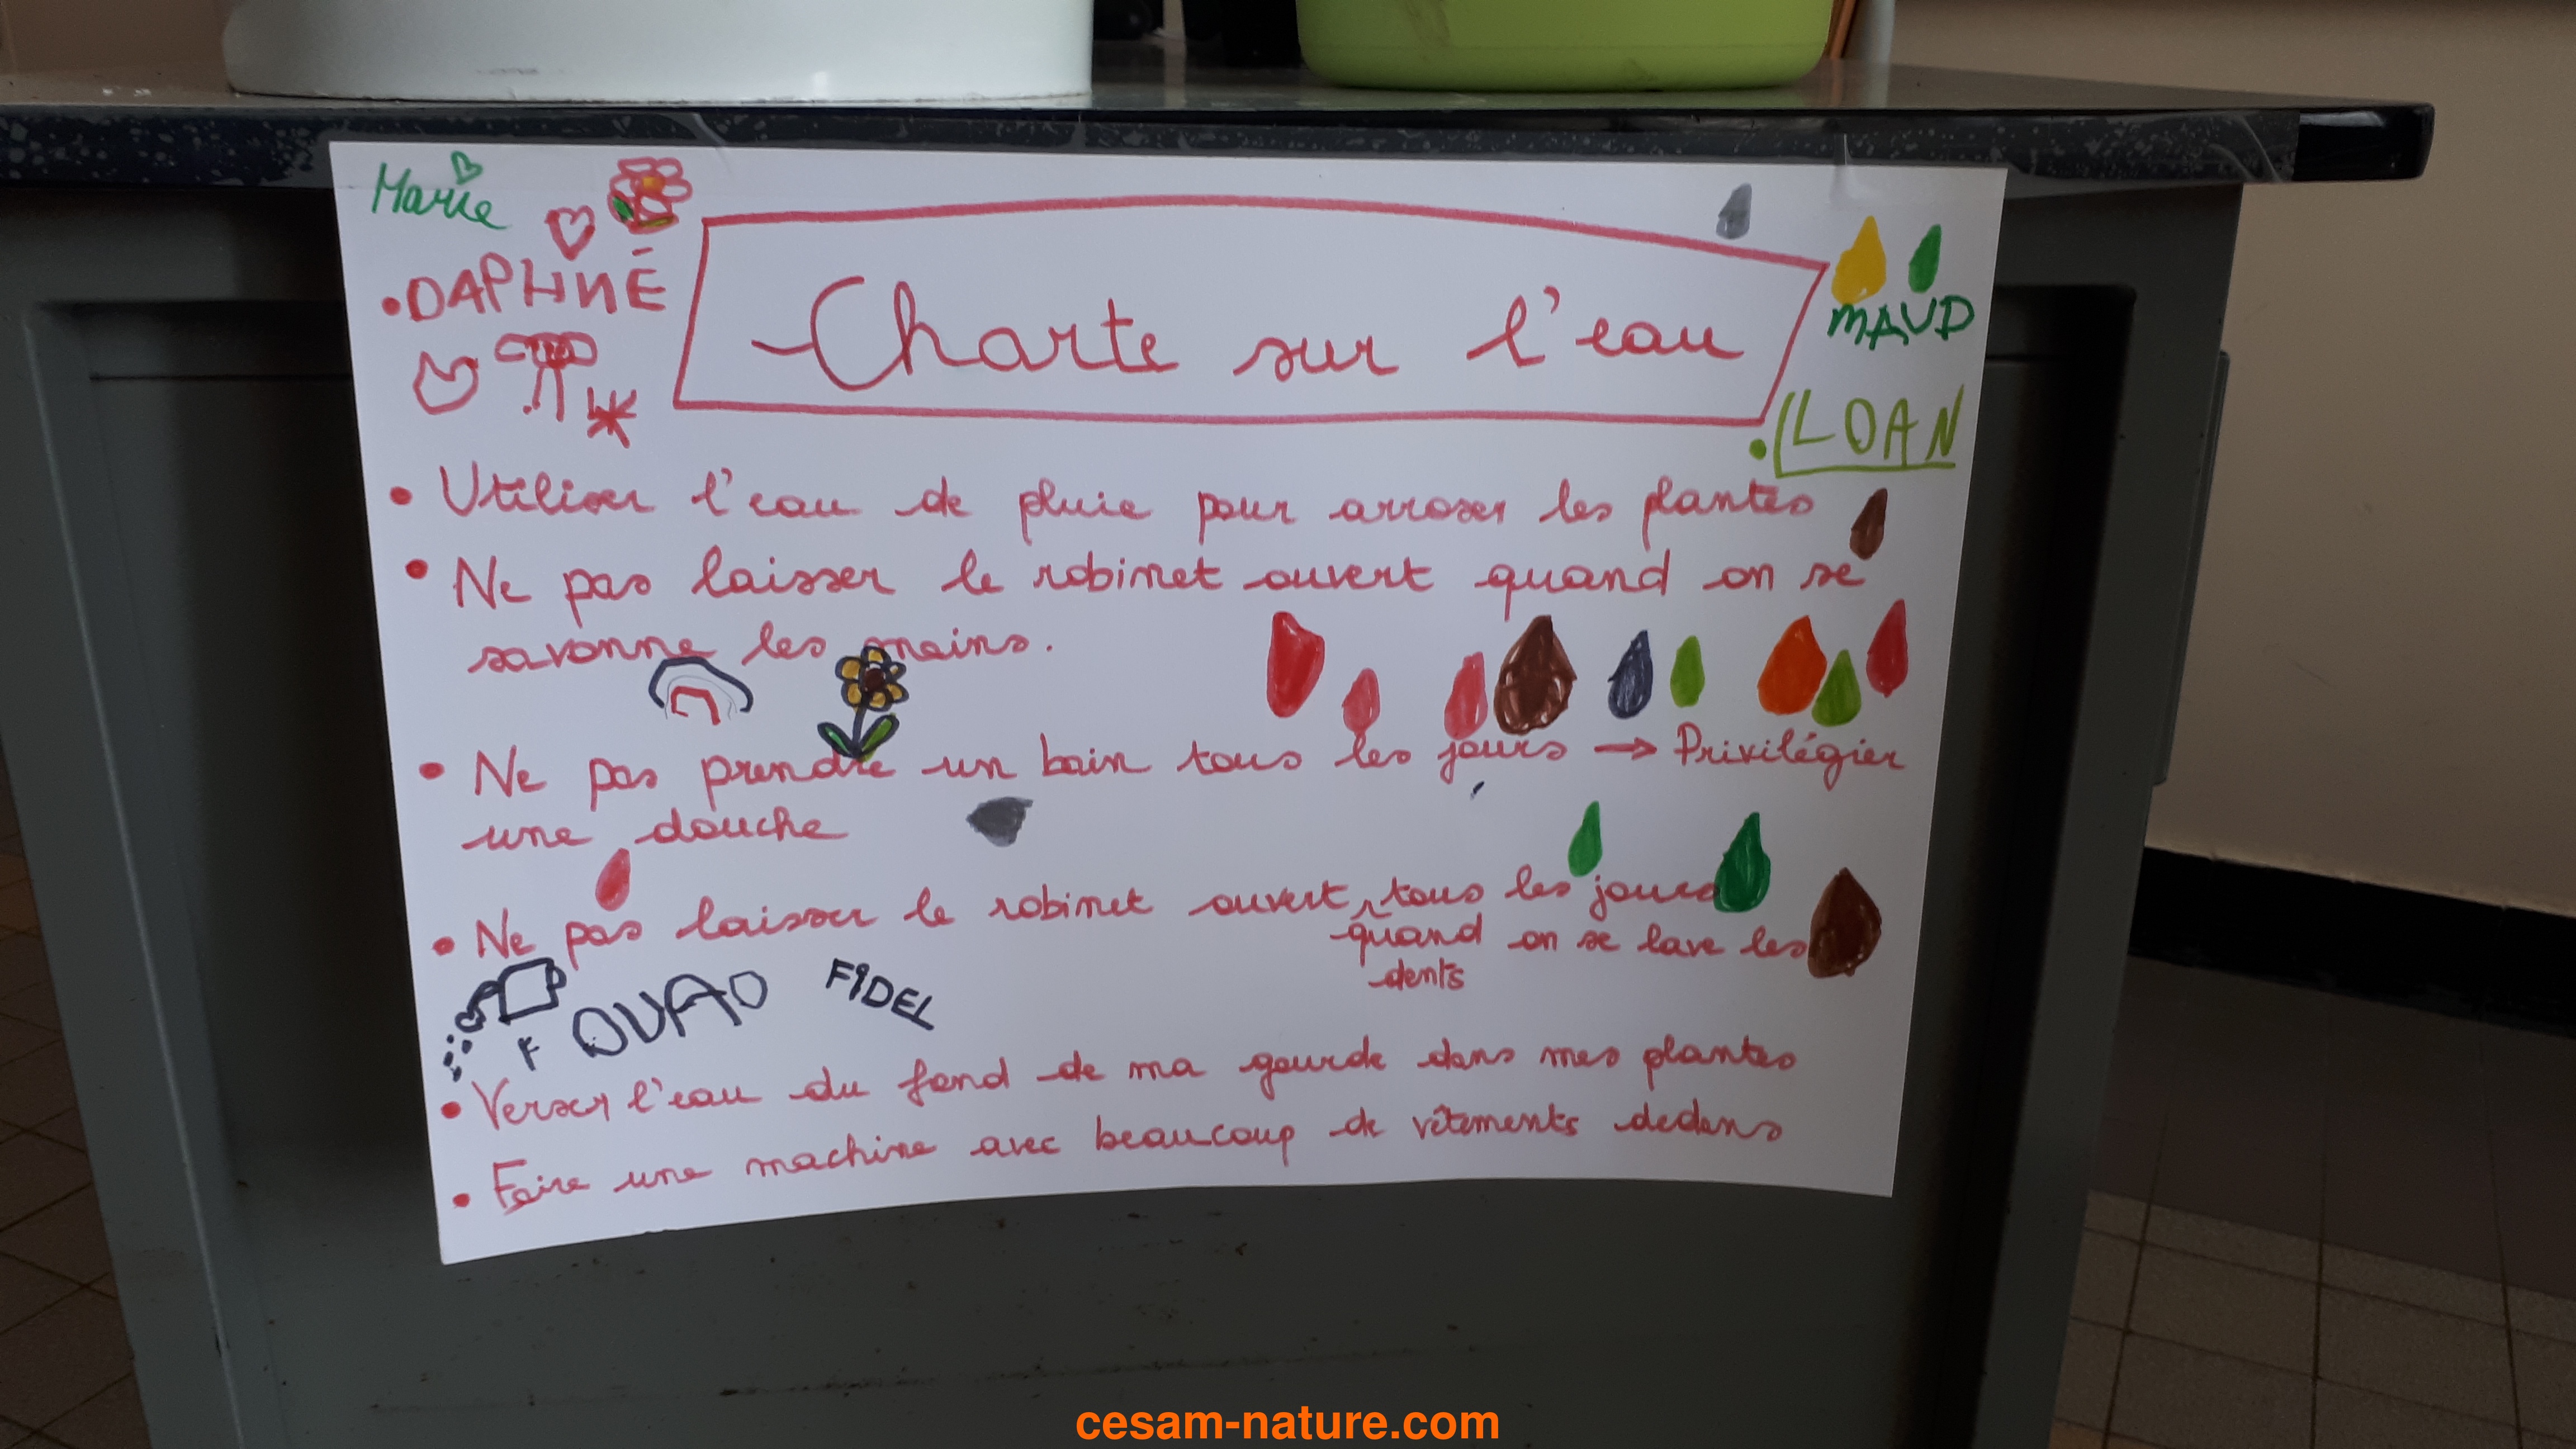 Marie
DAPHNÉ
Charte sur l'eau
MAUD
LOAN
• Utiliser l'eau de pluie pour arroser les plantes
• Ne pas laisser le robinet ouvert quand on se
savonne les mains.
• Ne pas prendre un bain tous les jours → Privilégier
une douche
• Ne pas laisser le robinet ouvert tous les jours
quand on se lave les
dents
FIDEL
• Verser l'eau du fond de ma gourde dans mes plantes
• Faire une machine avec beaucoup de vêtements dedans
cesam-nature.com